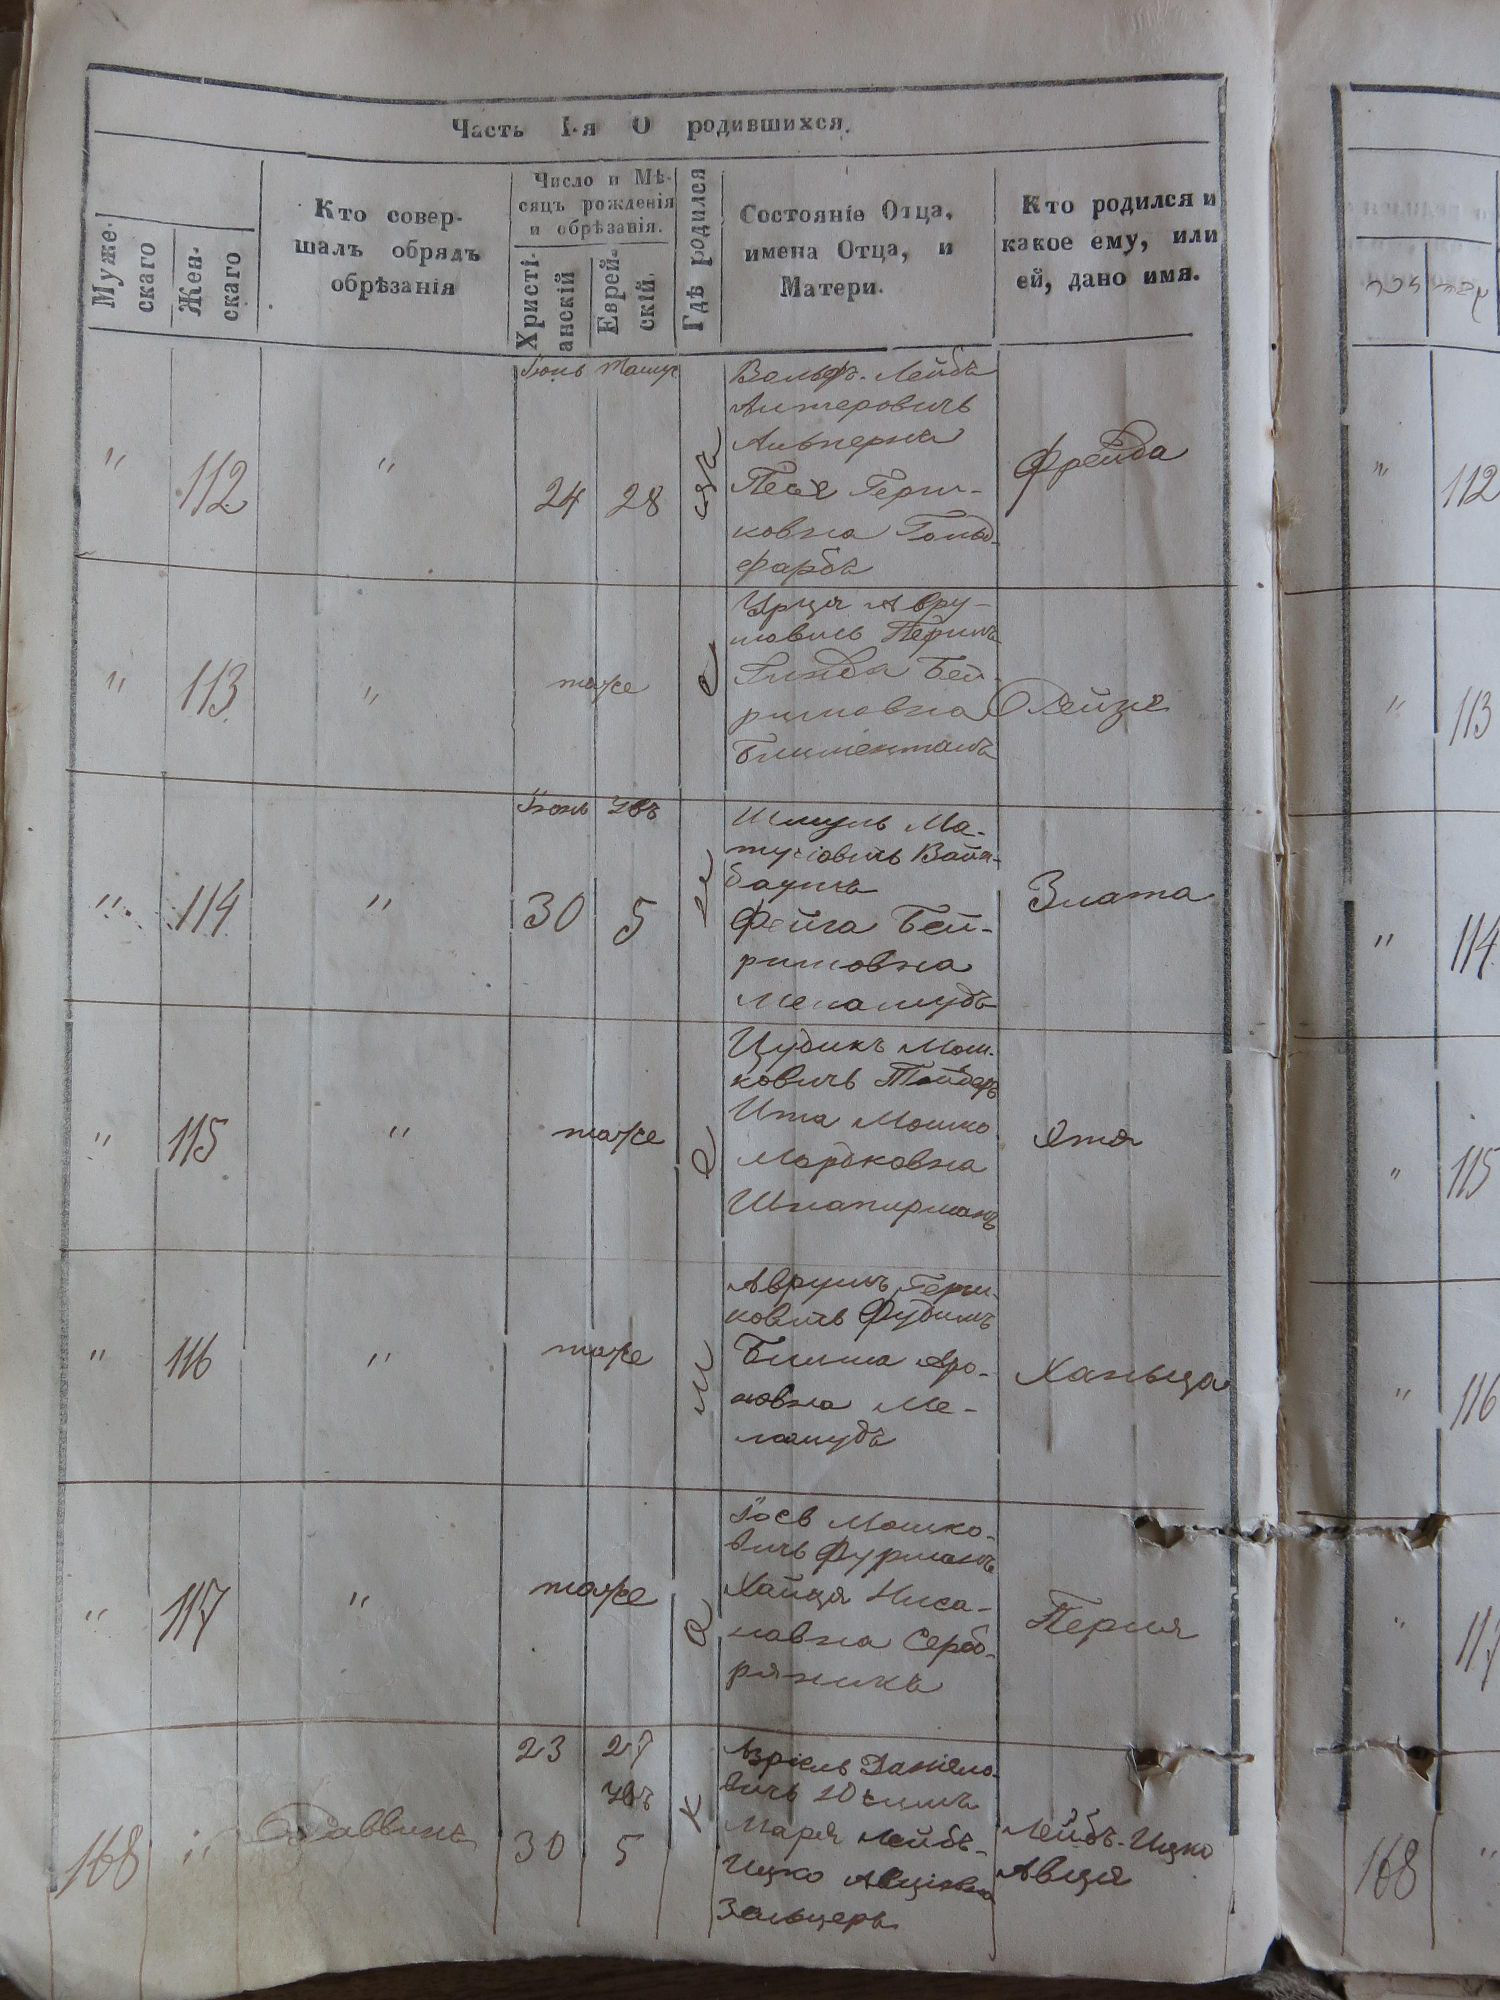 Часть I-я О родившихся.
Муже-
скаго
Жен-
скаго
Кто совер-
шалъ обрядъ
обрѣзанія
Число и Мѣ-
сяцъ рожденія
и обрѣзанія.
Христі-
анскій
Еврей-
скій
Гдѣ родился
Состояніе Отца,
имена Отца, и
Матери.
Кто родился и
какое ему, или
ей, дано имя.
" 112 "
24 28
Вольфъ-Лейбъ
Альперна
Песя Герш-
ковна Гольд-
фарбъ
Фрейда
" 113 "
тоже
Авру-
мовичъ
Бей-
римовна
Блюменталъ
Рейзя
" 114 "
Іюнь
30 5
Шмуль Ма-
тусовичъ Вайн-
баумъ
Фейга Бей-
римовна
Меламудъ
Злата
" 115 "
тоже
Мош-
ковичъ
Ита Мошко
Мордковна
Шнапирманъ
Этя
" 116 "
тоже
Аврумъ Герш-
ковичъ Фудимъ
Бимма Аро-
новна Ме-
ламудъ
Ханьця
" 117 "
тоже
Мошко-
вичъ Фурманъ
Хайця Ниса-
новна Сереб-
ряникъ
Перля
168 " Раввинъ
23 27
30 5
Азріель Даніело-
вичъ
Маря Лейбъ-
Ицко
Зальцеръ
Лейбъ-Ицко
Авція
" 112
" 113
" 114
" 115
" 116
" 117
168 "